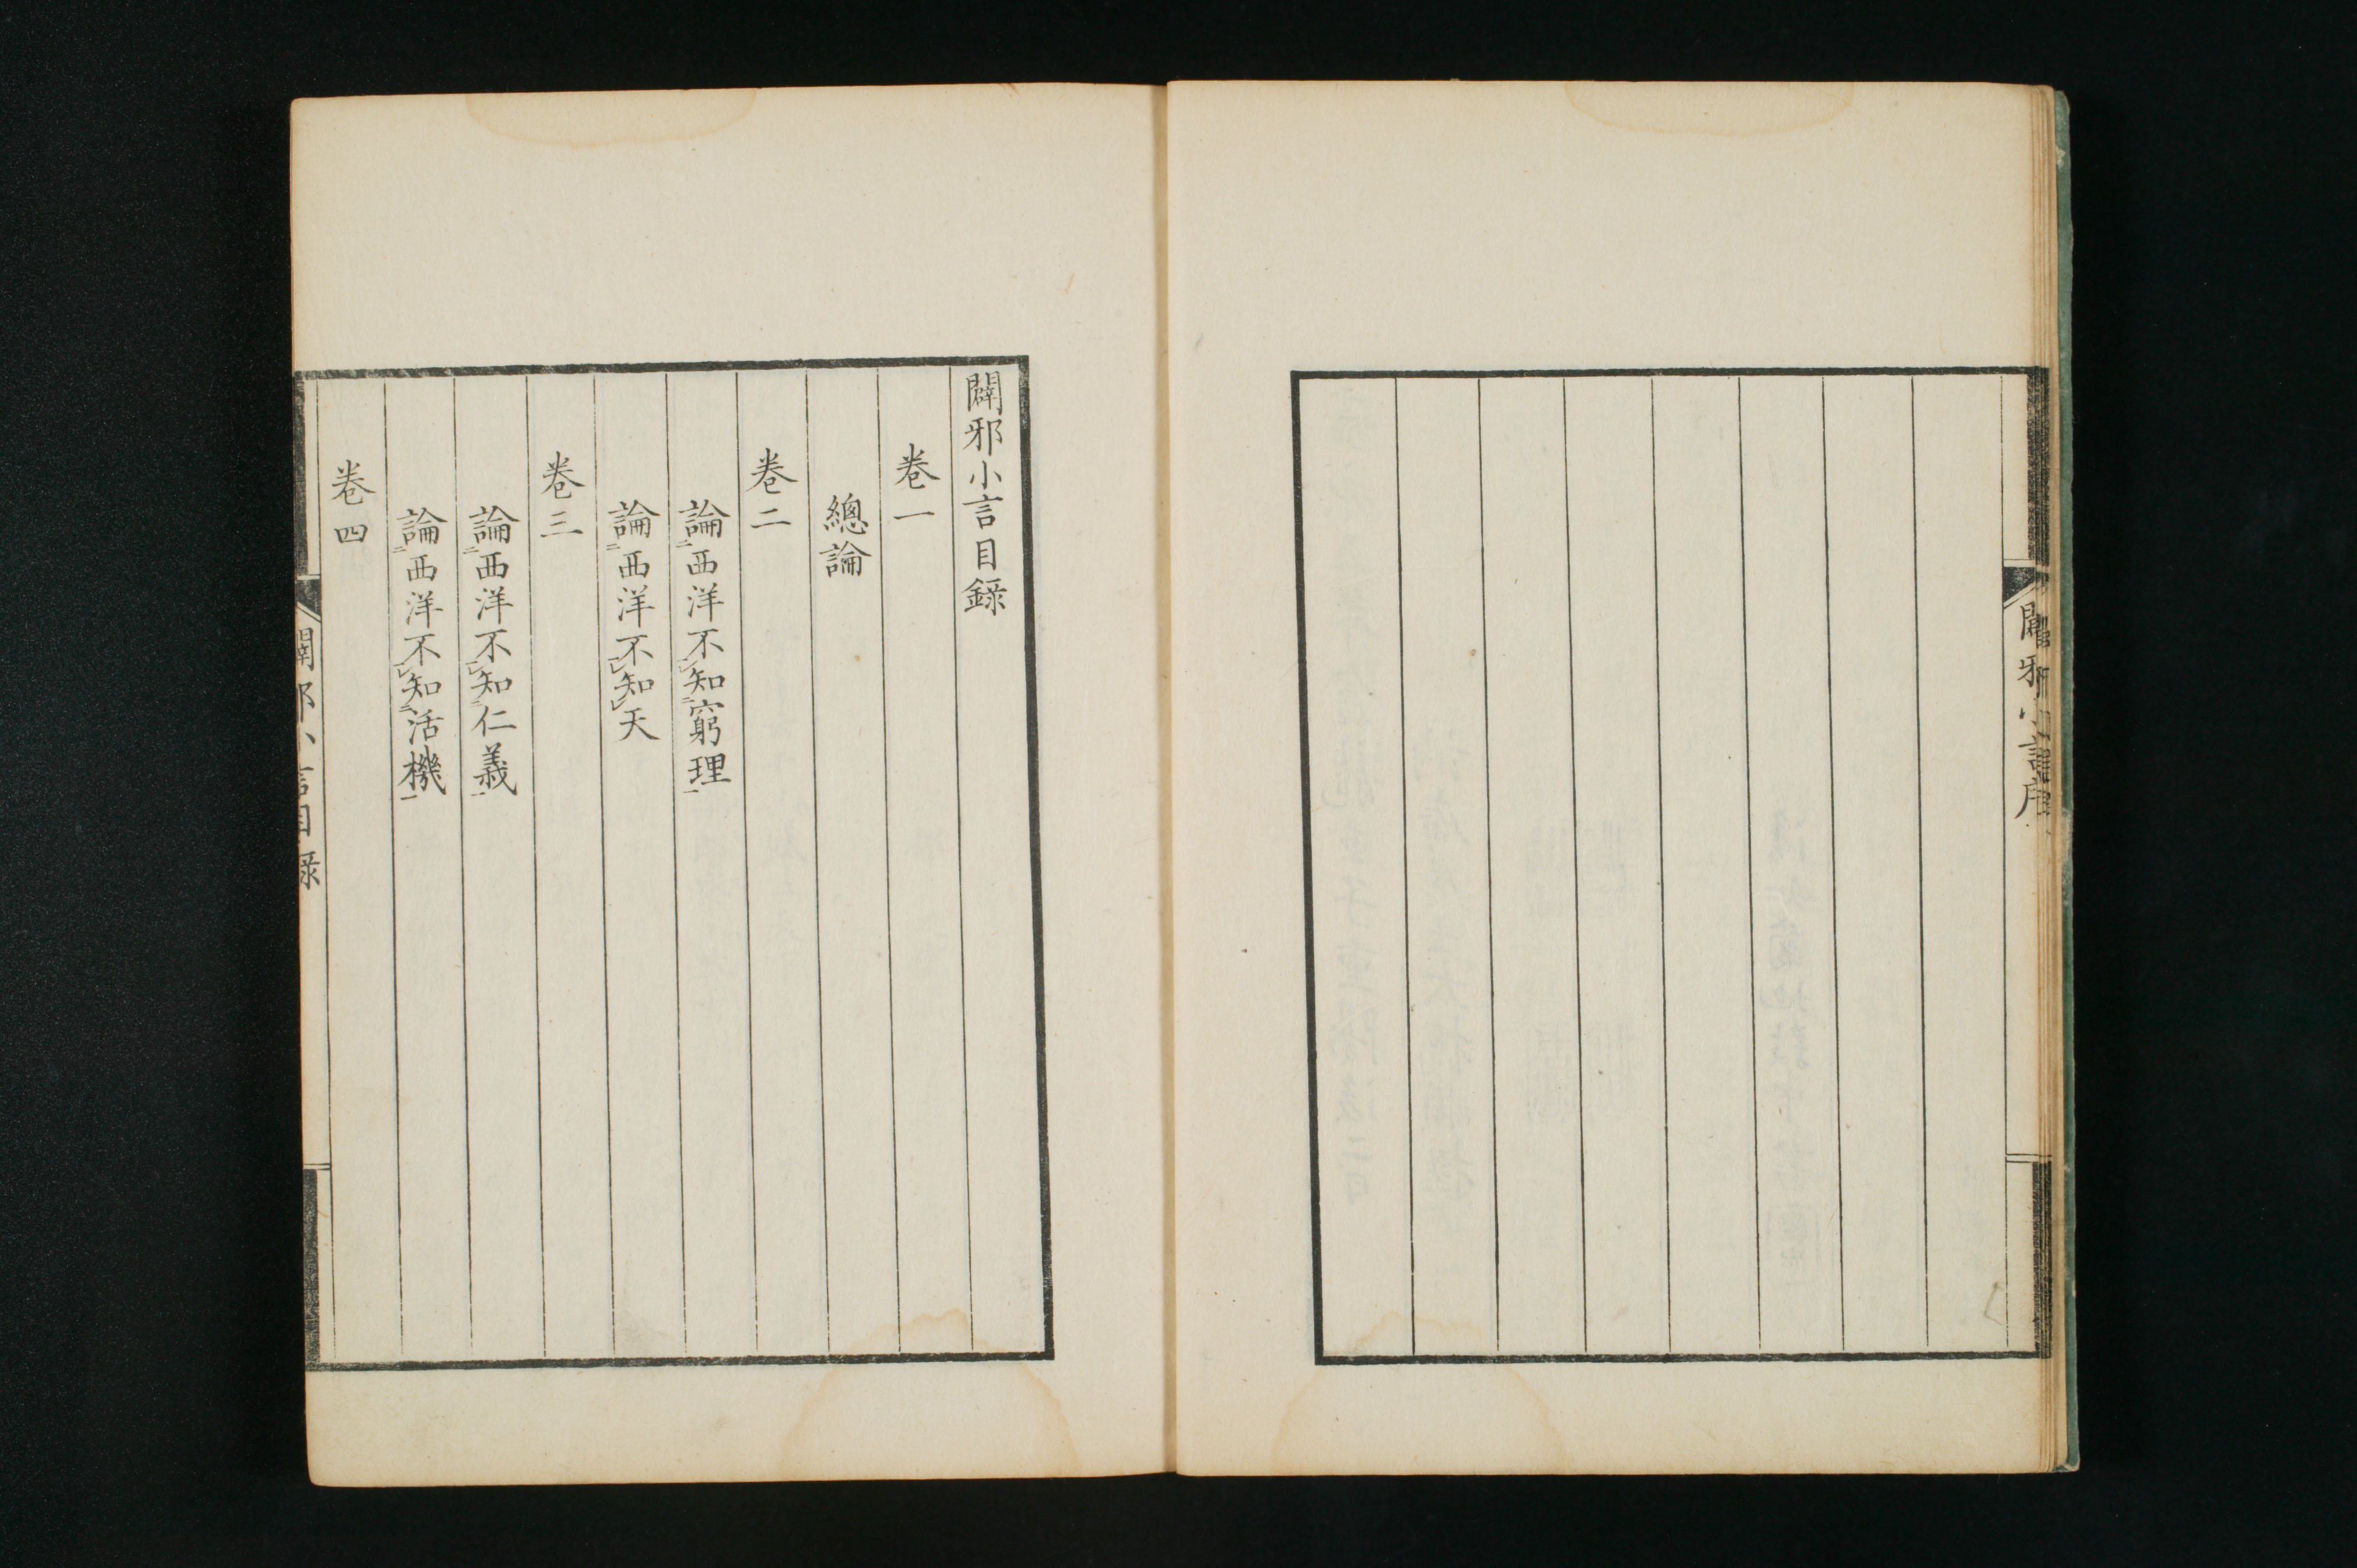 闢邪小言序
闢邪小言目錄
卷一
總論
卷二
論㆓西洋不㆑知㆓窮理㆒
論㆓西洋不㆑知㆑天
卷三
論㆓西洋不㆑知㆓仁義㆒
論㆓西洋不㆑知㆓活機㆒
卷四
闢邪小言目錄